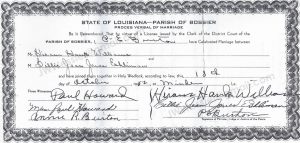 STATE OF LOUISIANA—PARISH OF BOSSIER
PROCES VERBAL OF MARRIAGE
Be it Remembered: That by virtue of a License issued by the Clerk of the District Court of the
PARISH OF BOSSIER, I, C. E. Burton have Celebrated Marriage between
Hiram Hank Williams
and
Billie Jean Jones Eshliman
and have joined them together in Holy Wedlock, according to law, on this 18th
day of October 
Paul Howard
Hiram Hank Williams
Mrs Paul Howard
Billie Jean Jones Eshliman
Annie R. Burton
C E Burton